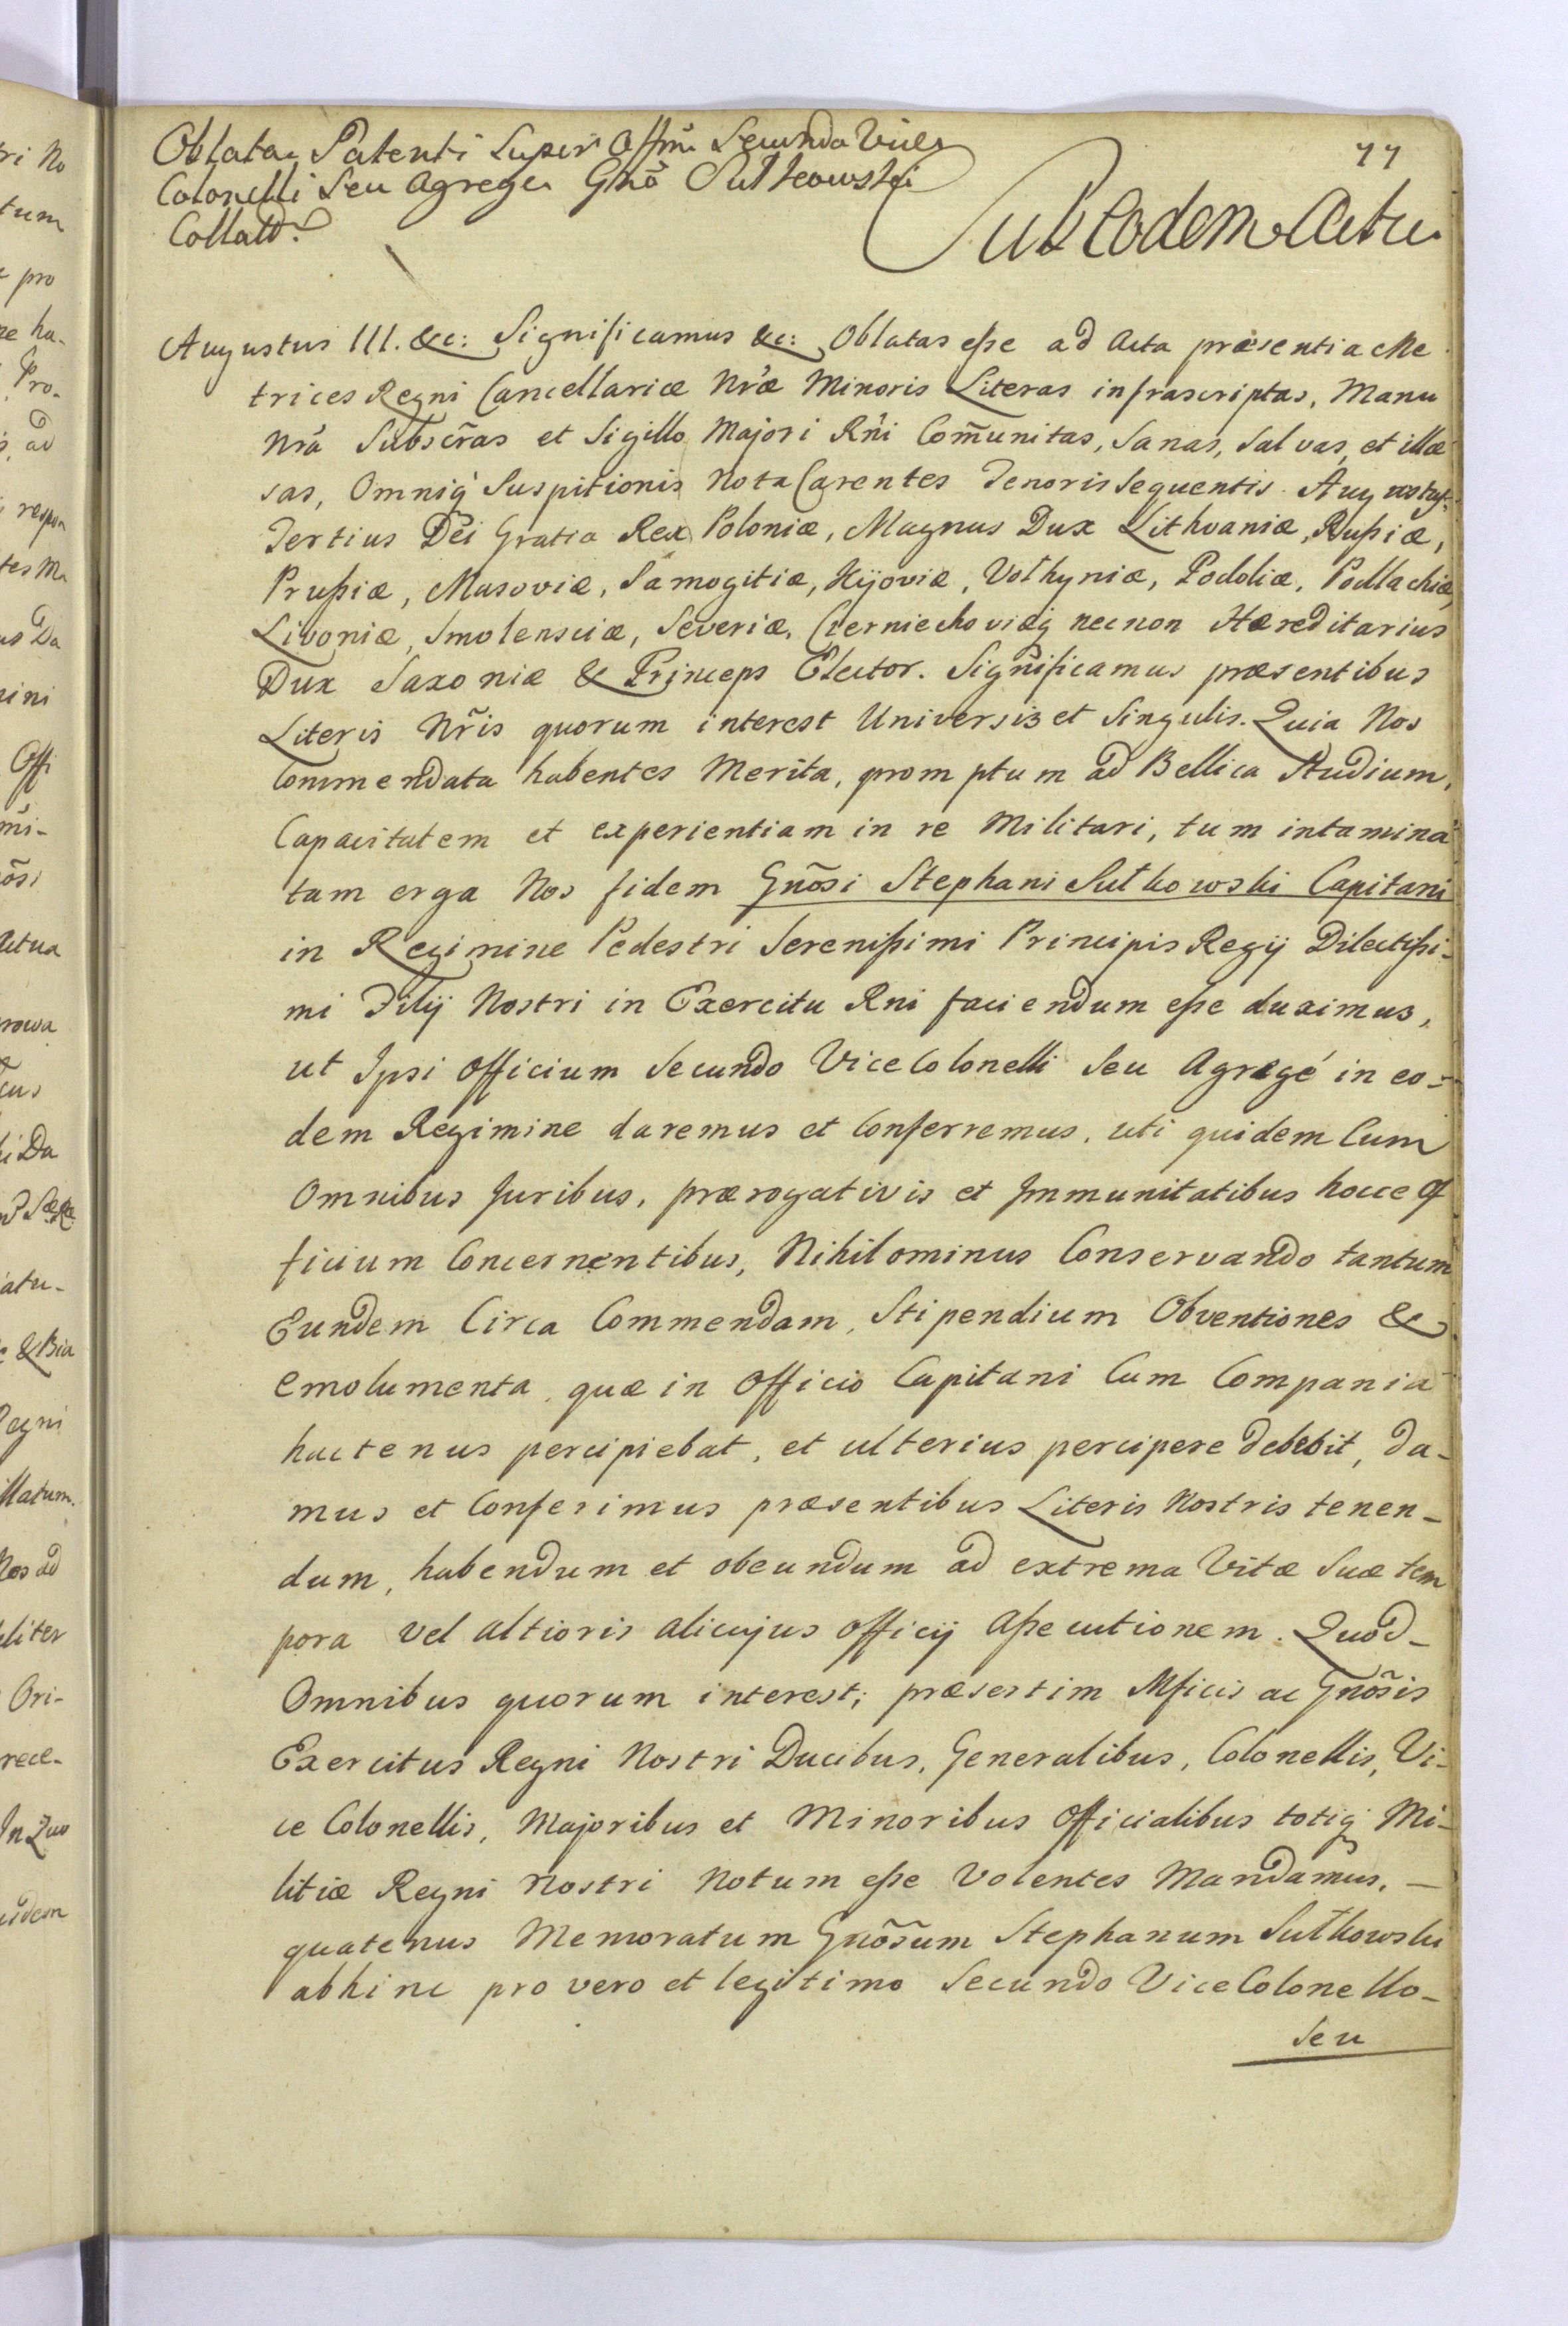 77
Oblata Patenti Super Offm̃ Secundo Vice
Colonelli Seu Agrege Gnõ Sułkowski
Collatũ
Sub Eodem Actu
Augustus III. &c: Significamus &c: Oblatas eſse ad Acta præsentia Me
trices Regni Cancellariæ Nr̃æ Minoris Literas infrascriptas, Manu
Nrã Subscr̃as et Sigillo Majori Rñi Com̃unitas, Sanas, Salvas, et illæ
sas, Omniq́ Suspitionis Nota Carentes Tenoris Sequentis. Augustus
Tertius Dei Gratia Rex Poloniæ, Magnus Dux Lithvaniæ, Rußiæ,
Prußiæ, Masoviæ, Samogitiæ, Kijoviæ, Vołhyniæ, Podoliæ, Podlachiæ,
Livoniæ, Smolensciæ, Severiæ, Czerniechoviæq́ necnon Hæreditarius
Dux Saxoniæ & Princeps Elector. Significamus præsentibus
Literis Nr̃is quorum interest Universis et Singulis. Quia Nos
Commendata habentes Merita, promptum ad Bellica Studium,
Capacitatem et experientiam in re Militari, tum intamina
tam erga Nos fidem Gnõsi Stephani Sułkowski Capitani
in Regimine Pedestri Sereniſsimi Principis Regij Dilectiſsi-
mi Filij Nostri in Exercitu Rni faciendum eſse duximus,
ut Ipsi Officium Secundo Vice Colonelli Seu Agregé in eo-
dem Regimine daremus et Conferremus, uti quidem Cum
Omnibus Juribus, prærogativis et Immunitatibus hocce of
ficium Concernentibus, Nihilominus Conservando tantum
Eundem Circa Commendam, Stipendium Obventiones &
emolumenta, quæ in Officio Capitani Cum Compania
hactenus percipiebat, et ulterius percipere debebit, da-
mus et Conferimus præsentibus Literis Nostris tenen-
dum, habendum et obeundum ad extrema Vitæ Suæ tem
pora vel altioris alicujus officij aſsecutionem. Quod-
Omnibus quorum interest; præsertim Mficis ac Gnõsis
Exercitus Regni Nostri Ducibus, Generalibus, Colonellis, Vi-
ce Colonellis, Majoribus et Minoribus Officialibus totiq́ Mi-
litiæ Regni Nostri Notum eſse Volentes Mandamus, -
quatenus Memoratum Gnõsum Stephanum Sułkowski
abhinc pro vero et legitimo Secundo Vice Colonello-
Seu